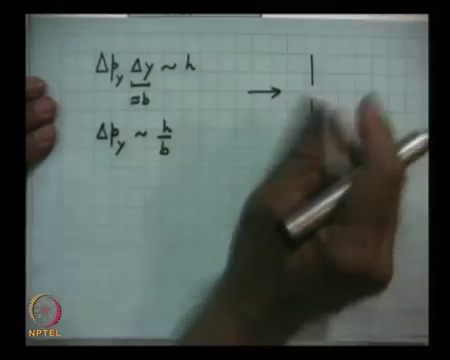 Δp_y Δy ~ h
= b
Δp_y ~ h/b
NPTEL